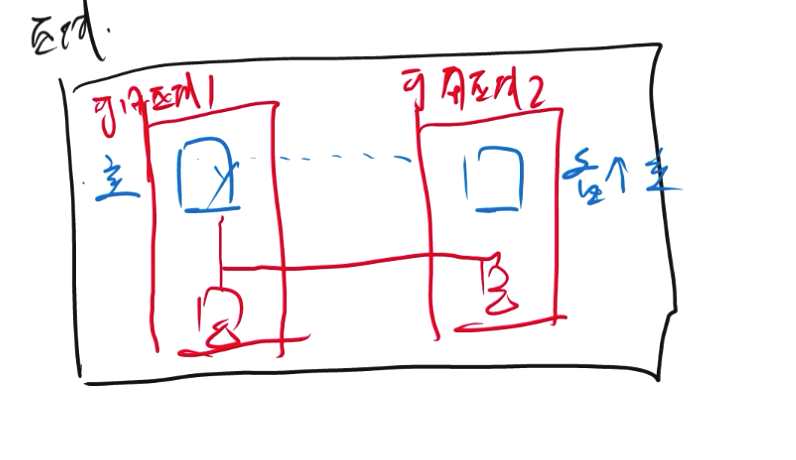 区域.
可用区域1
可用区域2
主
备↑主